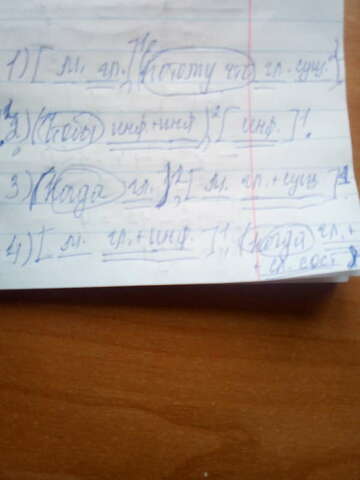 1) [ м. гл. ]¹, (потому что гл. сущ.)²
2) (Чтобы инф.+инф.)², [ инф. ]¹.
3) (Когда гл.)², [ м. гл.+сущ. ]¹.
4) [ м. гл.+инф. ]¹, (когда гл.+
сост